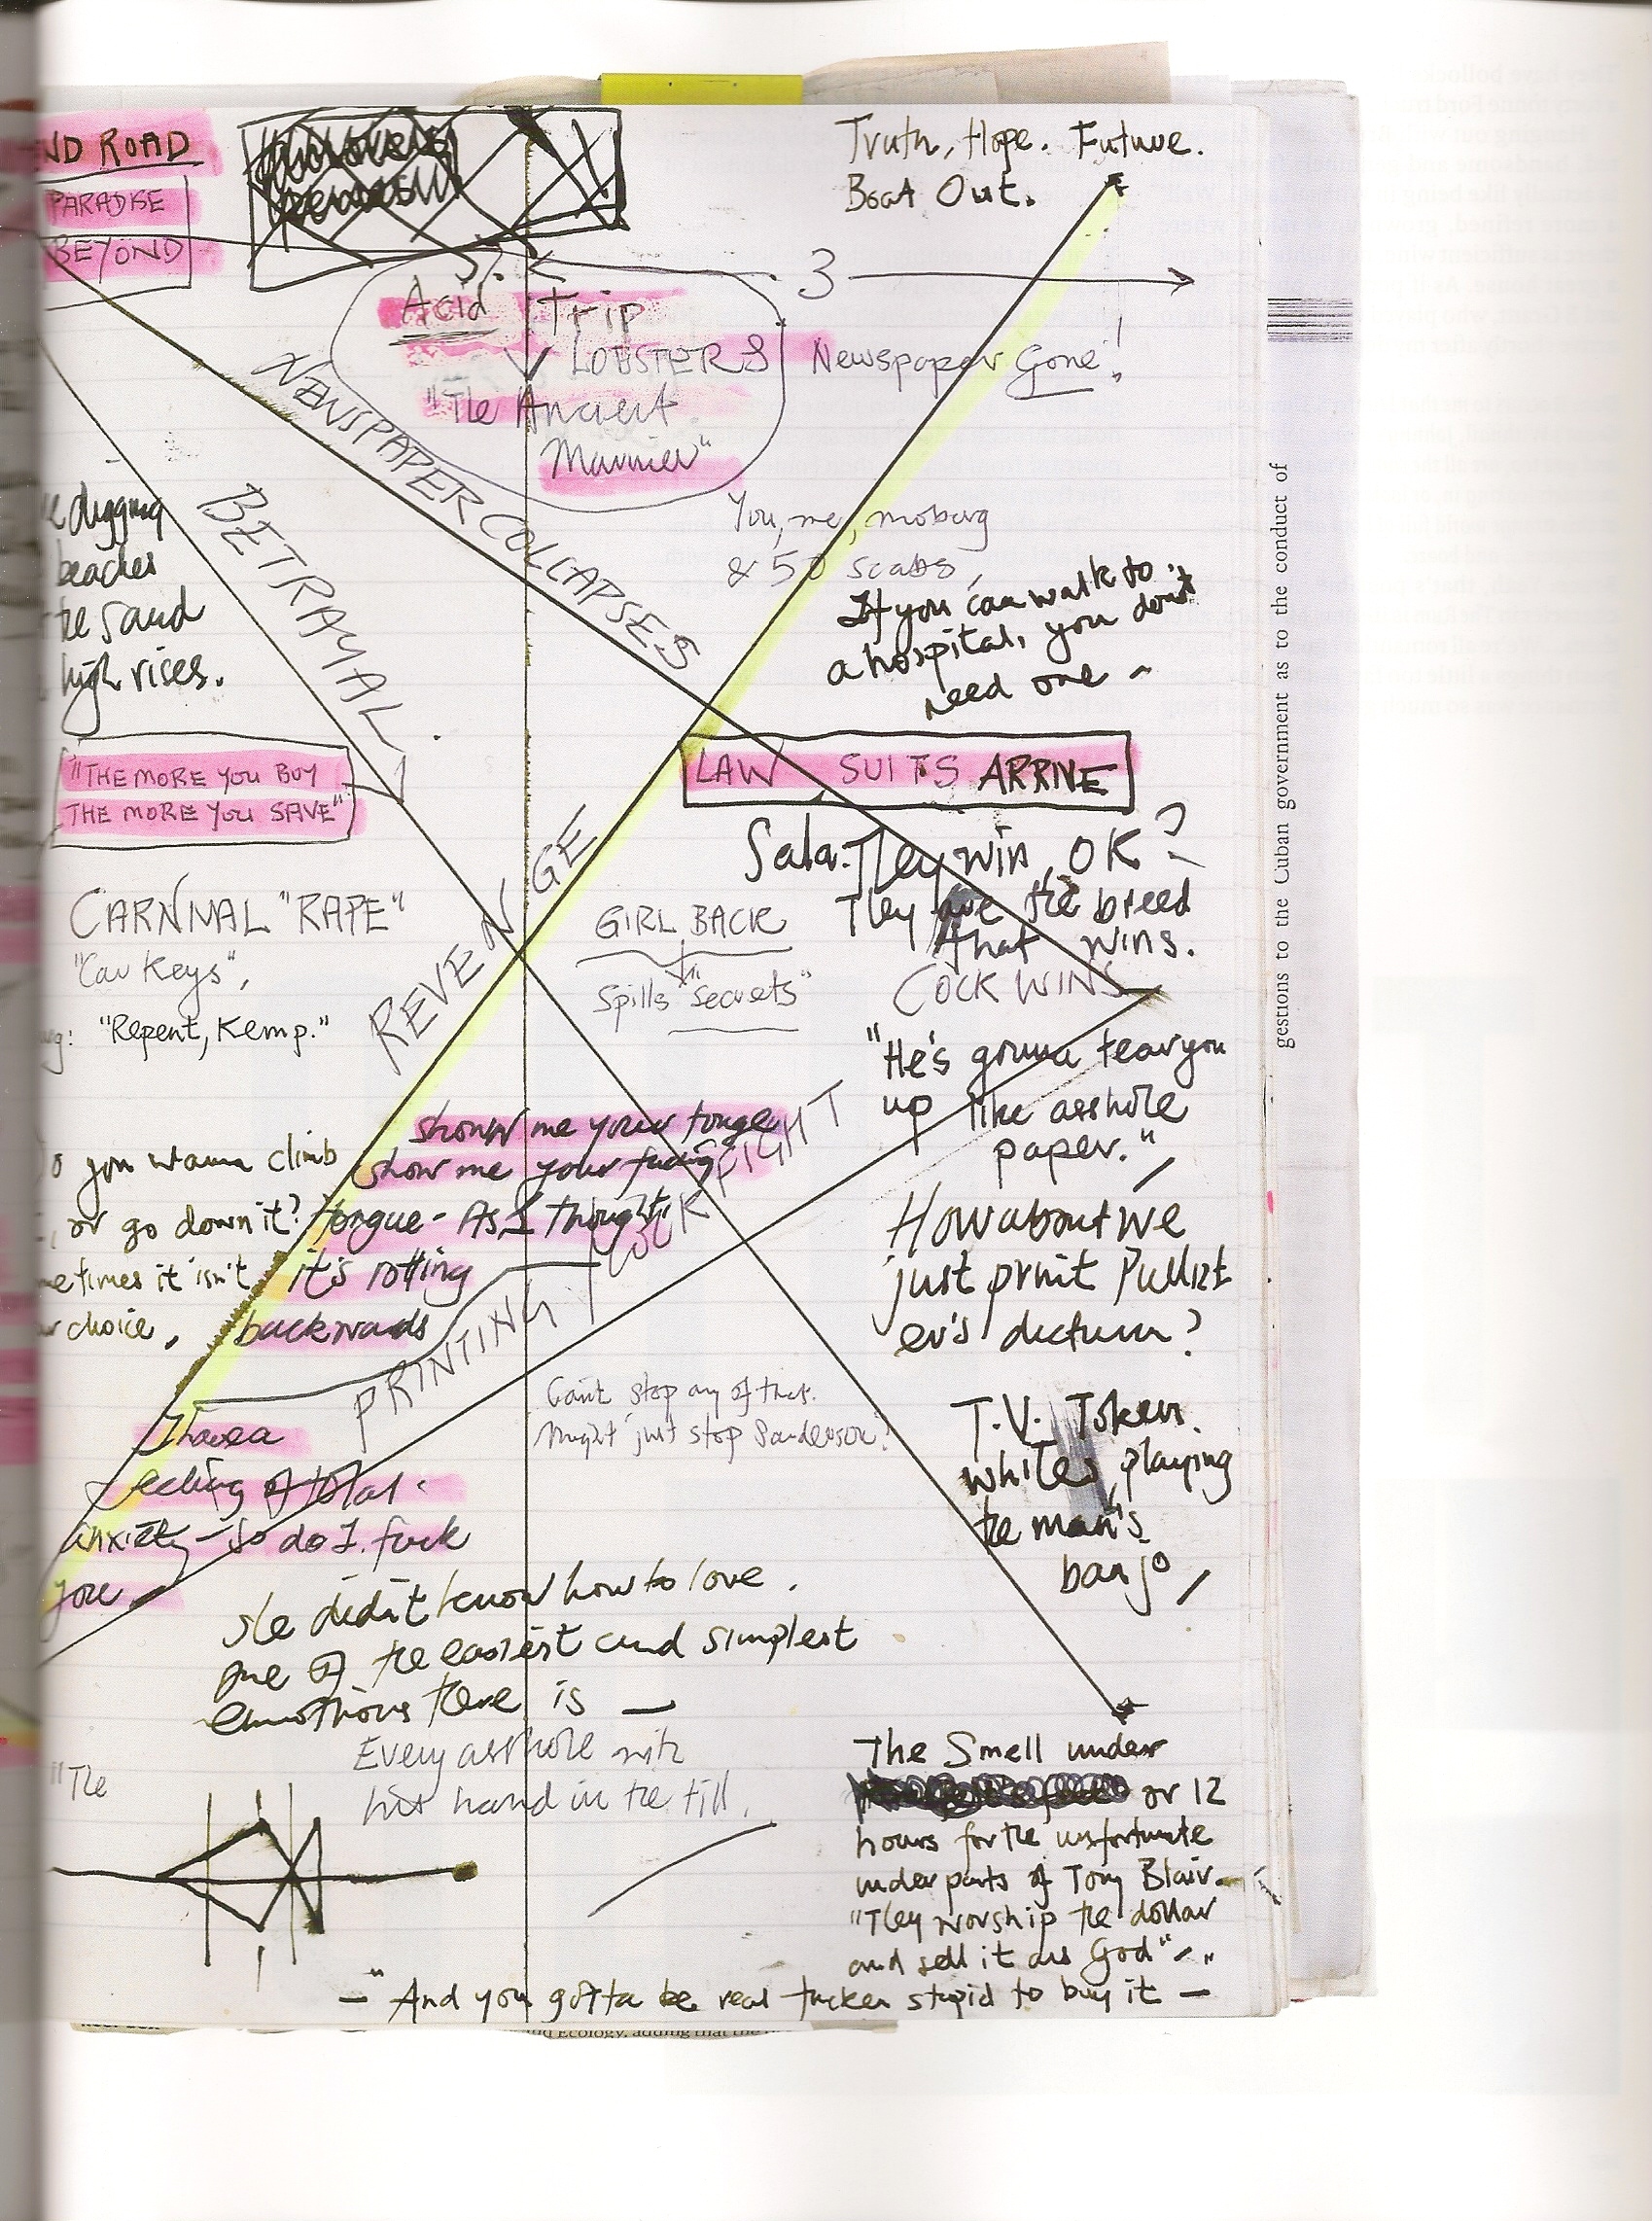 ND ROAD
PARADISE
BEYOND
Truth, Hope. Future.
Boat Out.
3
Acid Trip
LOBSTERS
"The Ancient
Mariner"
Newspaper Gone!
NEWSPAPER COLLAPSES
BETRAYAL
You, me, moburg
& 50 scabs,
If you can walk to
a hospital, you don't
need one -
digging
beaches
the sand
high rises.
"THE MORE YOU BUY
THE MORE YOU SAVE"
LAW SUITS ARRIVE
Sala. They win, OK?
They are the breed
that wins.
COCK WINS
REVENGE
GIRL BACK
Spills "Secrets"
CARNIVAL "RAPE"
"Car Keys",
"Repent, Kemp."
"He's gonna tear you
up like asshole
paper."
show me your tonge
show me your fucking
tongue - As I thought,
it's rotting
backwards
o you wanna climb
, or go down it?
metimes it isn't
choice.
PRINTING
COCK FIGHT
How about we
just print Pullitz
er's dictum?
Can't stop any of that.
Might just stop Sanderson?
T.V. Token
whites, playing
the man's
banjo
I have a
feeling of total
anxiety - So do I. fuck
you
She didn't know how to love.
one of the easiest and simplest
emothions there is —
Every asshole with
his hand in the till.
"The
The Smell under
or 12
hours for the unsfortunate
underparts of Tony Blair.
"They worship the dollar
and sell it as God"
— "And you gotta be real fucken stupid to buy it —
gestions to the Cuban government as to the conduct of
nd Ecology, adding that the